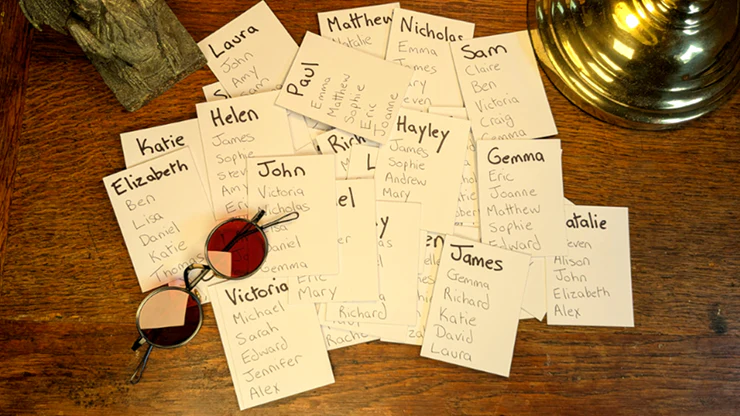 Laura
John
Amy
Matthew
Natalie
Nicholas
Emma
James
Sam
Claire
Ben
Victoria
Craig
Gemma
Paul
Emma
Matthew
Sophie
Eric
Joanne
Katie
Helen
James
Sophie
Amy
Hayley
James
Sophie
Andrew
Mary
Gemma
Eric
Joanne
Matthew
Sophie
Edward
Elizabeth
Ben
Lisa
Daniel
Katie
Thomas
John
Victoria
Nicholas
Gemma
Eric
Mary
Richard
James
Gemma
Richard
Katie
David
Laura
Alison
John
Elizabeth
Alex
Victoria
Michael
Sarah
Edward
Jennifer
Alex